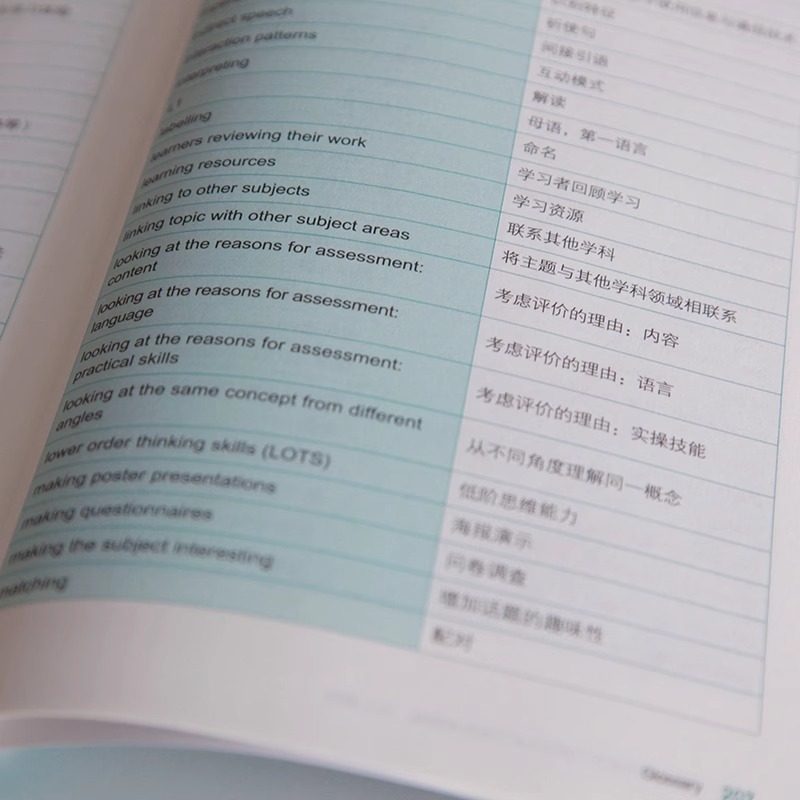 speech 间接引语
interaction patterns 互动模式
interpreting 解读
L1 母语，第一语言
labelling 命名
learners reviewing their work 学习者回顾学习
learning resources 学习资源
linking to other subjects 联系其他学科
linking topic with other subject areas 将主题与其他学科领域相联系
looking at the reasons for assessment: 考虑评价的理由：内容
content
looking at the reasons for assessment: 考虑评价的理由：语言
language
looking at the reasons for assessment: 考虑评价的理由：实操技能
practical skills
looking at the same concept from different 从不同角度理解同一概念
angles
lower order thinking skills (LOTS) 低阶思维能力
making poster presentations 海报演示
making questionnaires 问卷调查
making the subject interesting 增加话题的趣味性
matching 配对
Glossary